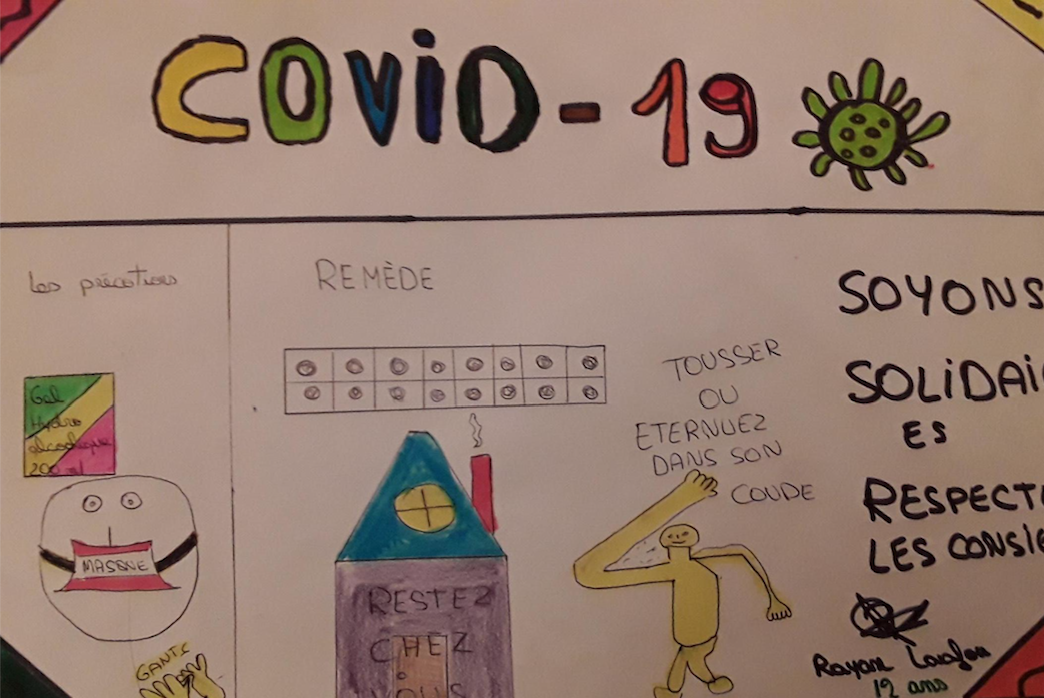 COVID-19
Les précotions
Gel
Hydro
alcoolique
200 ml
MASQUE
GANTS
REMÈDE
RESTEZ
CHEZ
VOUS
TOUSSER
OU
ETERNUEZ
DANS SON
COUDE
SOYONS
SOLIDAI
ES
RESPECT
LES CONSI
Rayan
12 ans